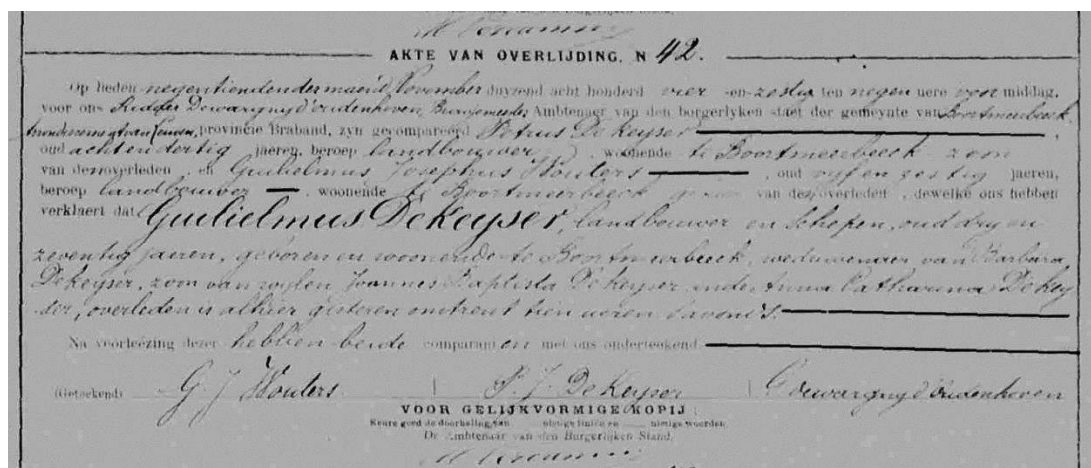 AKTE VAN OVERLIJDING, N 42.
Op heden negentienden der maend November duyzend acht honderd vier -en-zestig ten negen uere voor middag,
voor ons Ridder Dewargnyd'oudenhoven, Burgemeester Ambtenaar van den borgerlyken staet der gemeynte van Boortmeerbeeck
arrondissement van Leuven, provincie Braband, zyn gecompareerd Petrus De Keyser
oud achtendertig jaeren, beroep landbouwer, woonende te Boortmeerbeeck zoon
van den overleden, en Guilielmus Josephus Wouters, oud vyf en zestig jaeren,
beroep landbouwer, woonende te Boortmeerbeeck van den overleden, dewelke ons hebben
verklaert dat Guilielmus DeKeyser, landbouwer en Schepen, oud dry en
zeventig jaeren, geboren en woonende te Boortmeerbeeck, weduwenaer van Barbara
DeKeyser, zoon van wylen Joannes Baptista DeKeyser en de Anna Catharina DeKey
ser, overleden is alhier gisteren omtrent tien ueren s'avonds.
Na voorleézing dezer hebben beide comparanten met ons onderteekend
(Geteekend) G J Wouters | P. J. DeKeyser | G dewargnyd'oudenhoven
VOOR GELIJKVORMIGE KOPIJ :
Keure goed de doorhaling van nietige liniën en nietige woorden.
De Ambtenaar van den Burgerlijken Stand,